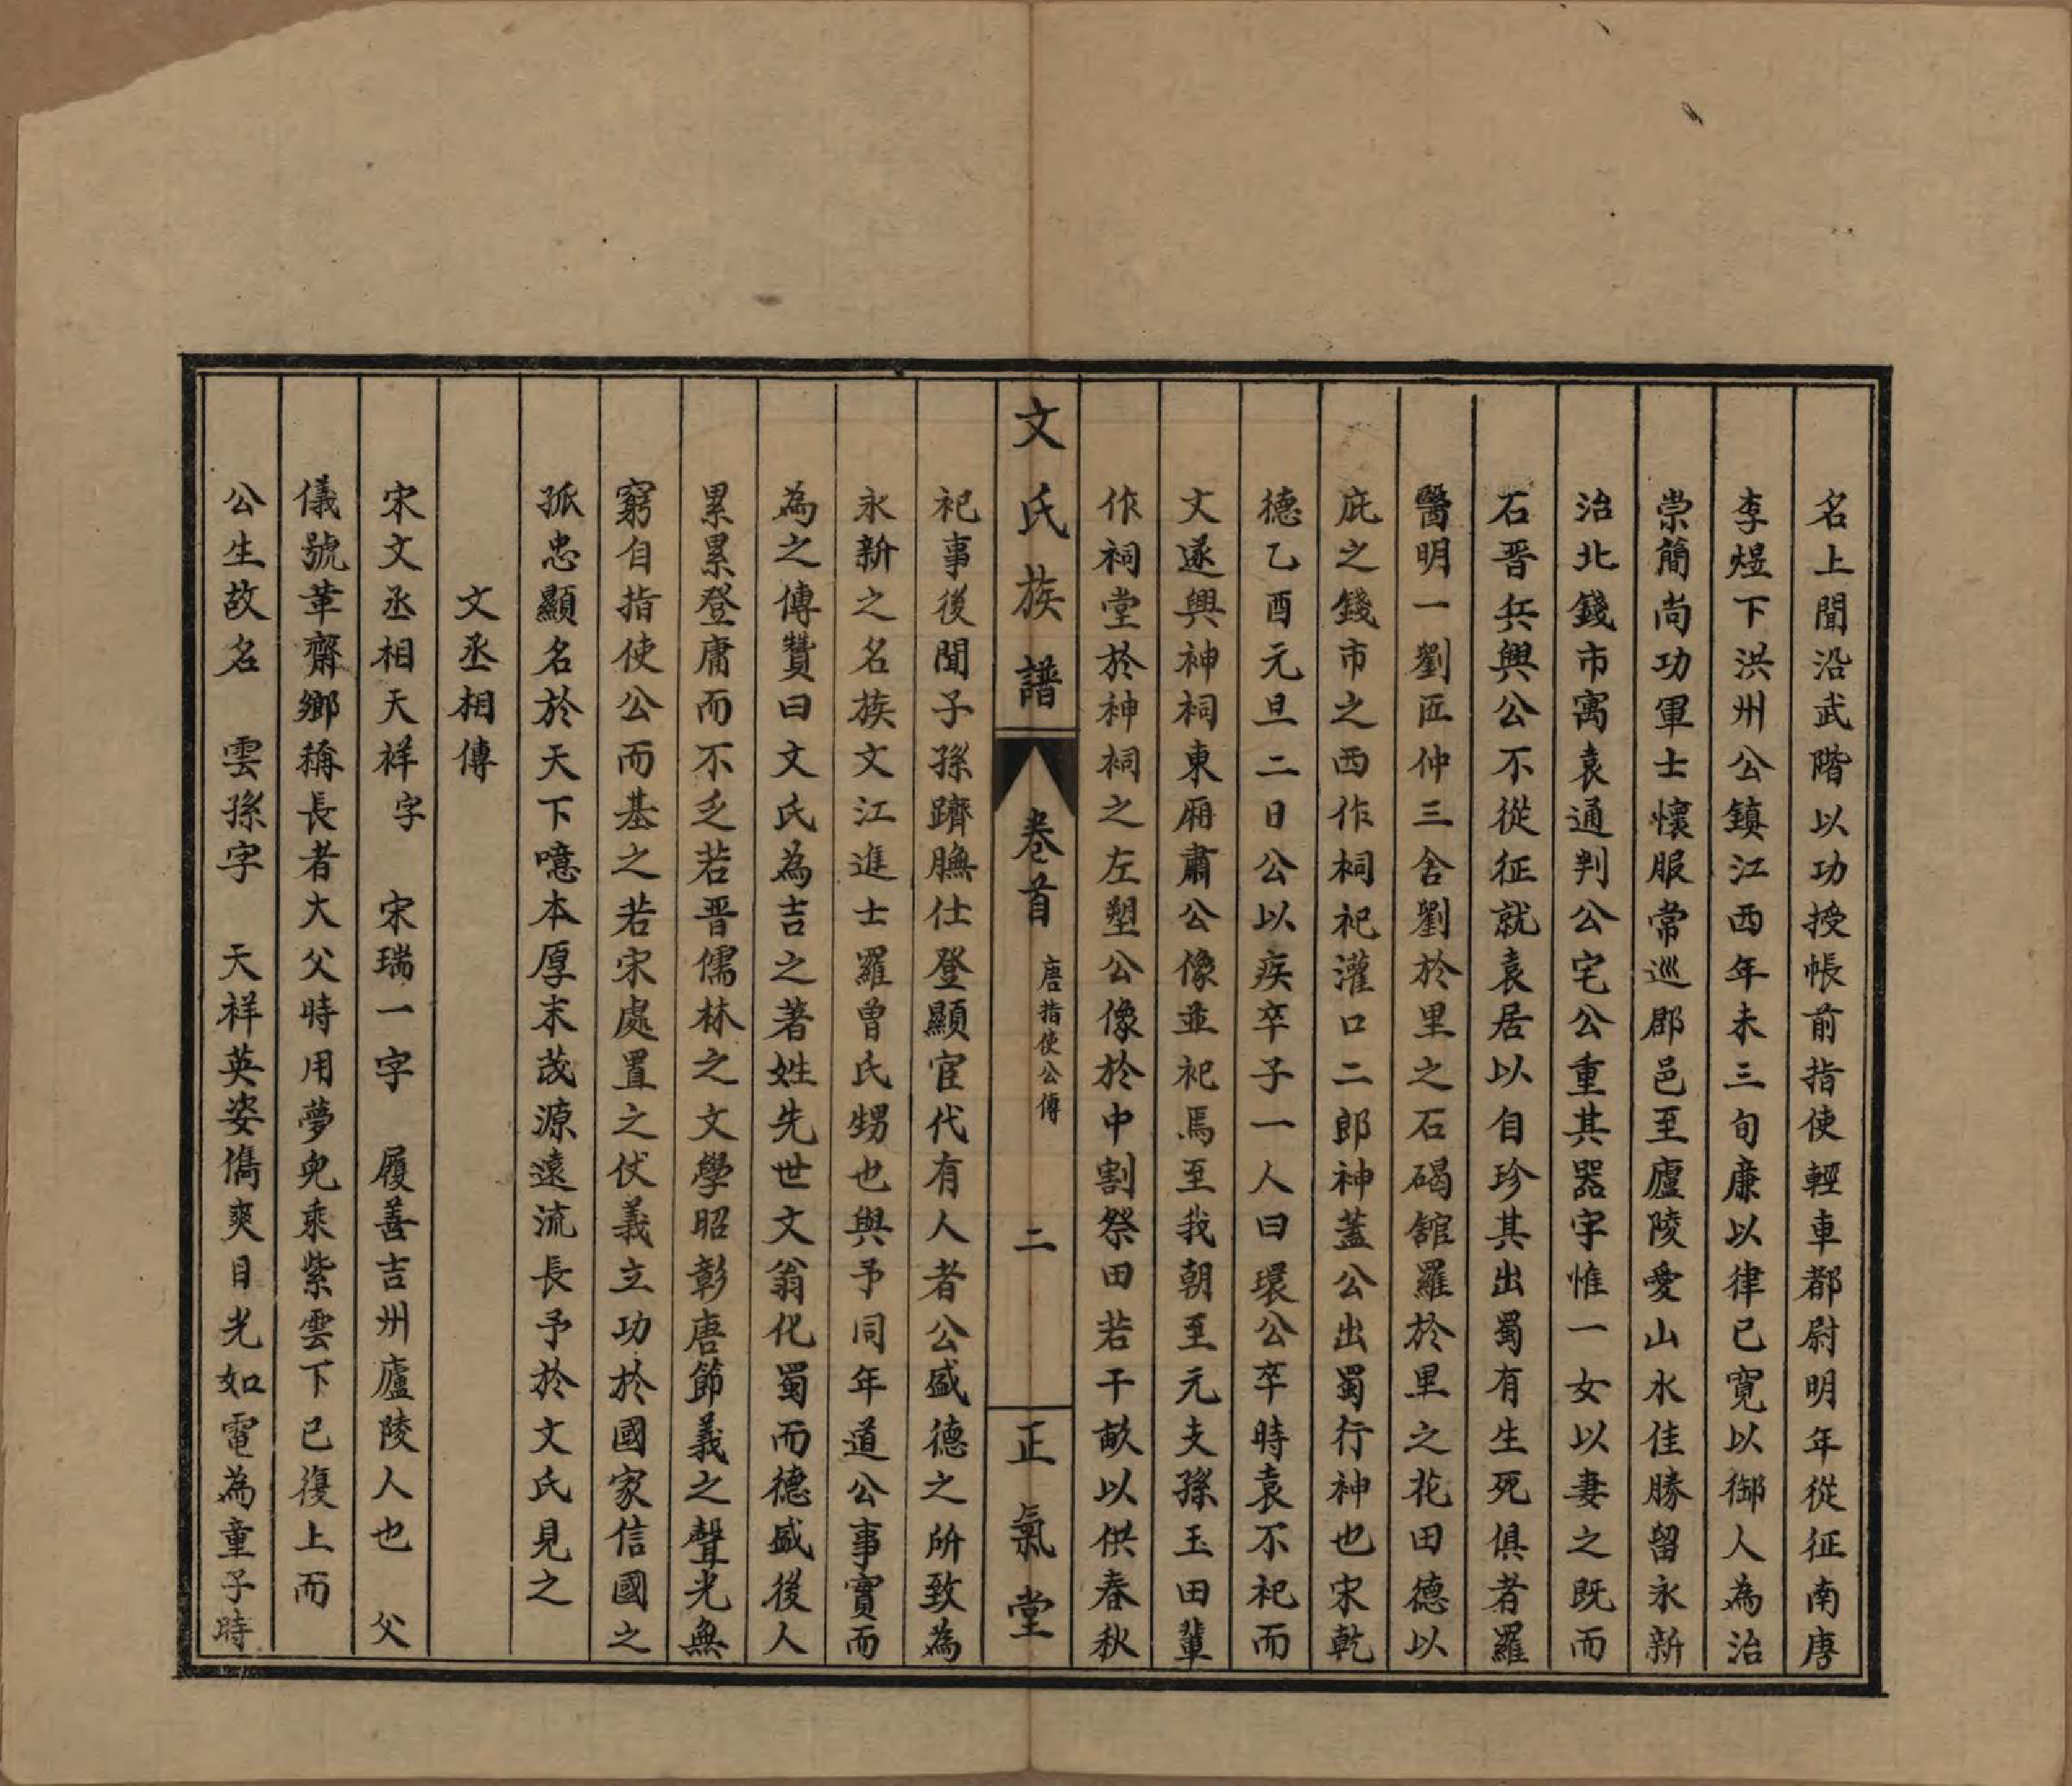 名上聞沿武階以功授帳前指使輕車都尉明年從征南唐
李煜下洪州公鎮江西年未三旬廉以律已寬以御人為治
崇簡尚功軍士懷服常巡郡邑至廬陵愛山水佳勝留永新
治北錢市寓袁通判公宅公重其器宇惟一女以妻之既而
石晋兵興公不從征就袁居以自珍其出蜀有生死俱者羅
醫明一劉匠仲三舍劉於里之石碣舘羅於里之花田德以
庇之錢市之西作祠祀灌口二郎神蓋公出蜀行神也宋乾
德乙酉元旦二日公以疾卒子一人曰環公卒時袁不祀而
文遂興神祠東廂肅公像並祀焉至我朝至元支孫玉田輩
作祠堂於神祠之左塑公像於中割祭田若干畝以供春秋
文氏族譜
卷首
唐指使公傳
二
正氣堂
祀事後聞子孫躋膴仕登顯宦代有人者公盛德之所致為
永新之名族文江進士羅曾氏甥也與予同年道公事實而
為之傳贊曰文氏為吉之著姓先世文翁化蜀而德盛後人
累累登庸而不乏若晋儒林之文學昭彰唐節義之聲光無
窮自指使公而基之若宋處置之伏義立功於國家信國之
孤忠顯名於天下噫本厚末茂源遠流長予於文氏見之
文丞相傳
宋文丞相天祥字　宋瑞一字　履善吉州廬陵人也　父
儀號革齋鄉稱長者大父時用夢兒乘紫雲下已復上而
公生故名　雲孫字　天祥英姿儁爽目光如電為童子時